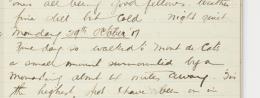 ones all being good fellows. Weather
fine still but cold. Night quiet
Monday 29th October 17
Fine day so walked to Mont de Cats
a small mount surmounted by a
monastery about 4 miles away. Tis
the highest spot I have been on in